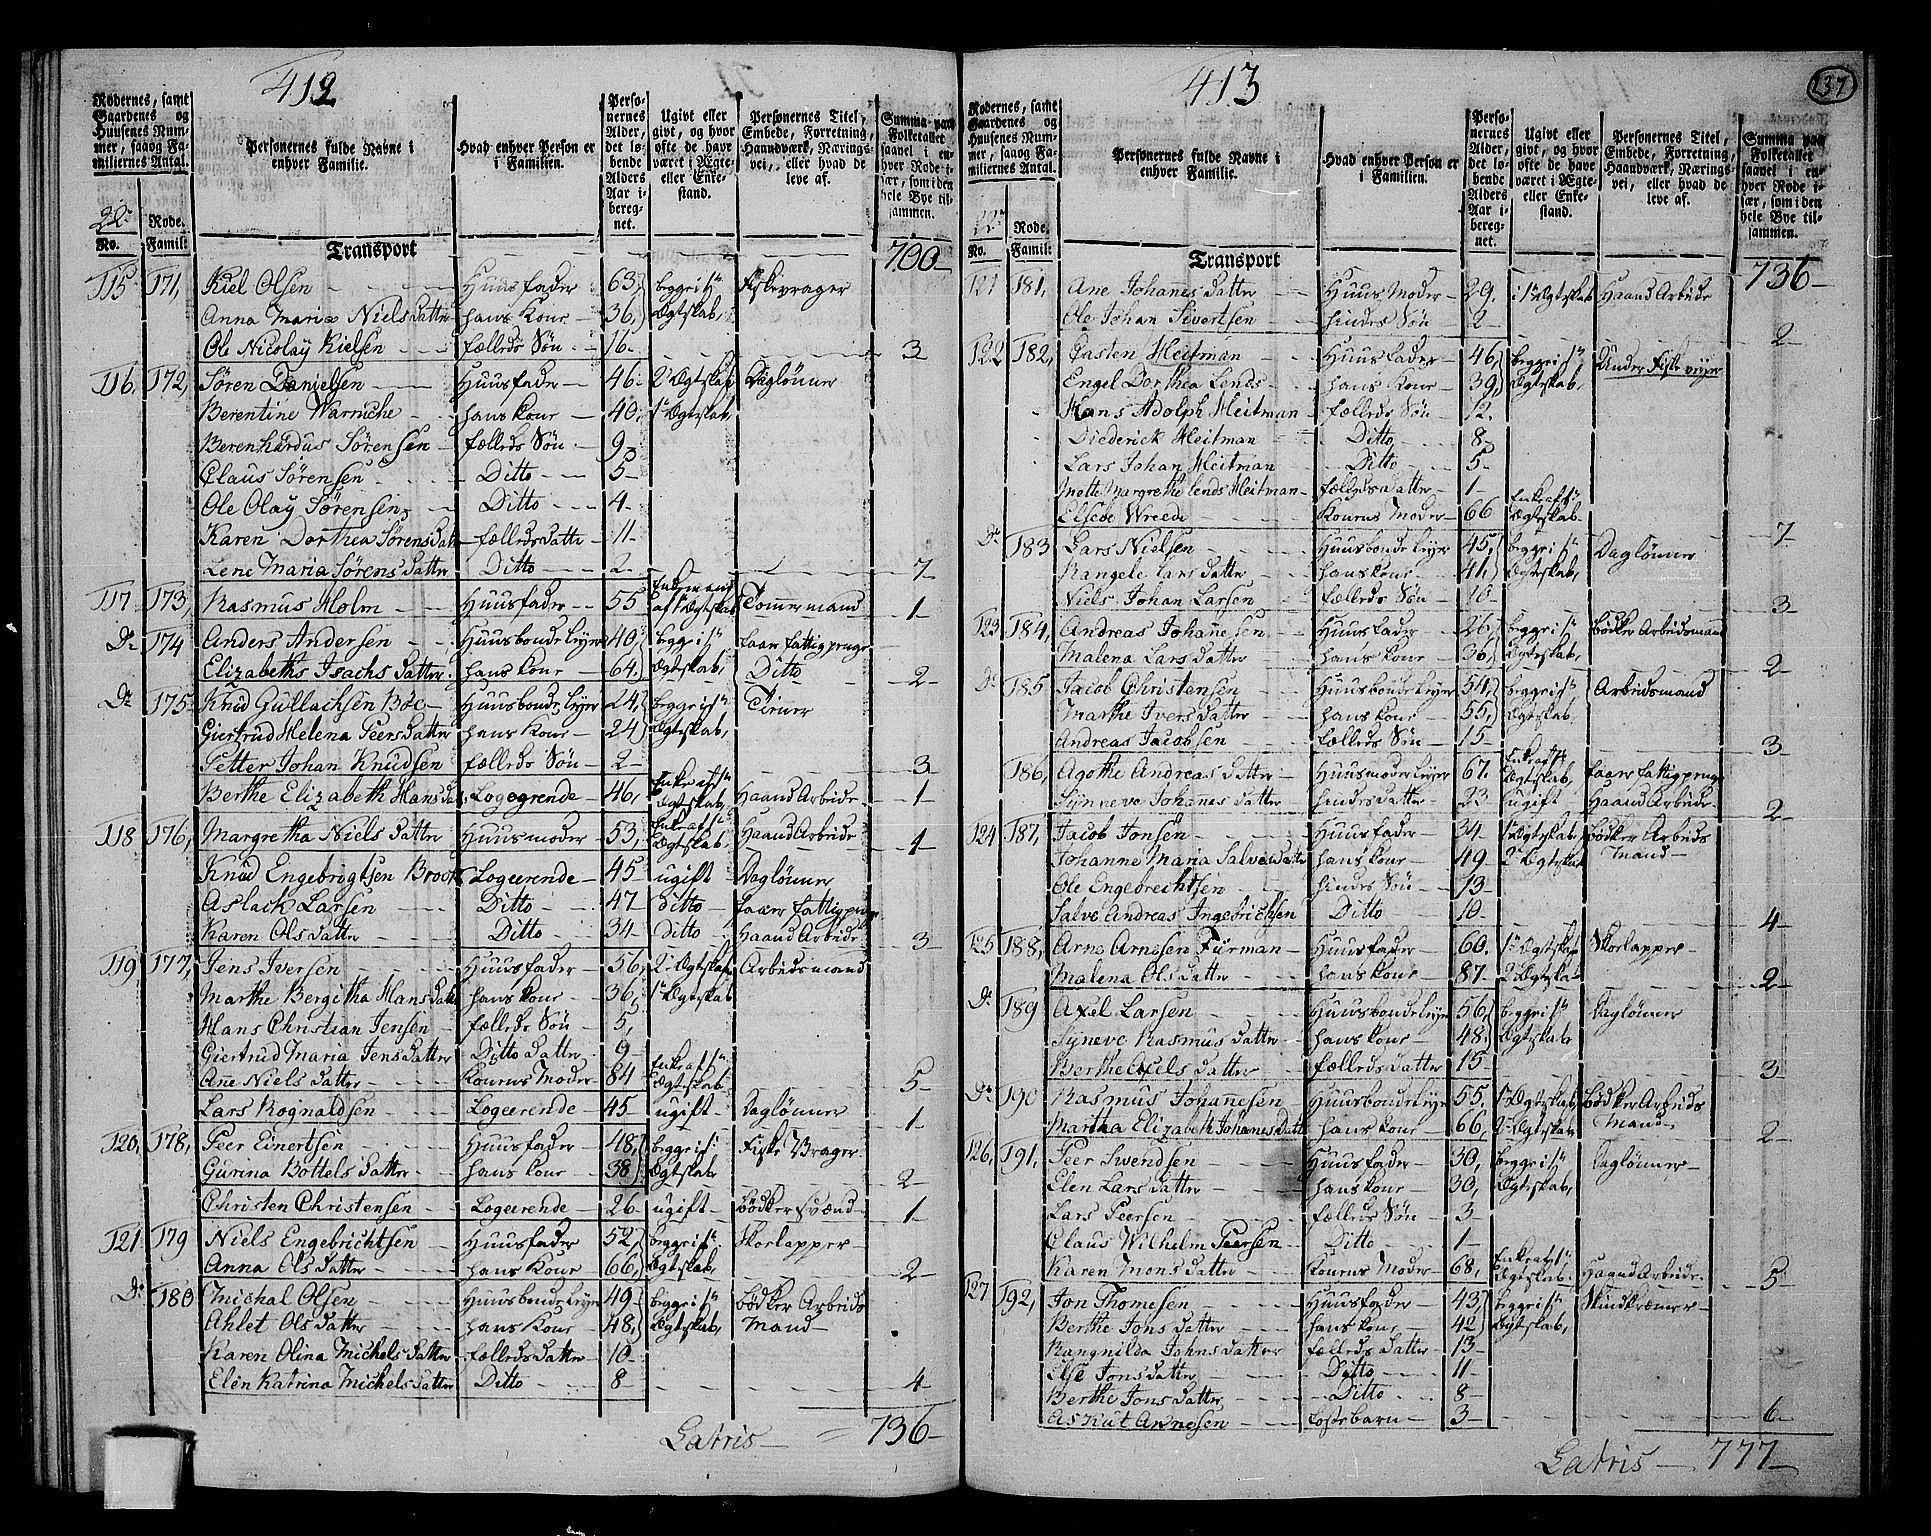 412
Rodernes, samt Gaardenes og Huusenes Nummer, saaog Familiernes Antal.
Personernes fulde Navne i enhver Familie.
Hvad enhver Person er i Familien.
Personernes Alder, det løbende Alders Aar iberegnet.
Ugivt eller givt, og hvor ofte de have været i Ægte- eller Enkestand.
Personernes Titel, Embede, Forretning, Haandværk, Næringsvei, eller hvad de leve af.
Summa paa Folketallet saavel i enhver Rode især, som i den hele Bye tilsammen.
22de Rode.
No. Famil:
Transport 700
115 171, Kiel Olsen Huusfader 63, begge i 1ste Fiskevrager
Anna Maria Nielsdatter hans Kone 36, Ægtskab,
Ole Nicolay Kielsen fælleds Søn 16 3
116, 172, Søren Danielsen Huusfader 46 2 Ægtskab Daglønner
Berentine Warnche hans kone 40, 1ste Ægtskab
Berenhardus Sørensen fælleds Søn 9
Claus Sørensen Ditto 5
Ole Olay Sørensen Ditto 4
Karen Dorthea Sørensdatter fælleds datter 11
Lene Maria Sørensdatter Ditto 2 7
117 173, Rasmus Holm Huusfader 55 Enkemand af 1 Ægtskab Tømmermand 1
Do 174 Anders Andersen Huusbonde Leyer 40, begge i 1ste faaer fattigpenge
Elizabeths Isachsdatter hans kone 64 Ægtskab, Ditto 2
Do 175 Knud Gullachsen Bøe Huusbonde Leyer 24, begge i 1ste Tiener
Giertrud Helena Peersdatter hans Kone 24 Ægtskab,
Petter Johan Knudsen fælleds Søn 2 3
Berthe Elizabeth Hansdatter Logerende 46, Enke af 1ste Ægtskab, Haand Arbeide 1
118 176, Margretha Nielsdatter Huusmoder 53, Enke af 1ste Ægtskab Haand Arbeide 1
Knud Engebrigtsen Logerende 45 ugift Daglønner
Aslack Larsen Ditto 47 Ditto faaer fattigpenge
Karen Olsdatter Ditto 34 Ditto Haand Arbeide 3
119 177, Jens Iversen Huusfader 56, 2 Ægtskab Arbeidsmand
Marthe Bergitha Hansdatter hans kone 36, 1ste Ægtskab
Hans Christian Jensen fælleds Søn 5,
Giertrud Maria Jensdatter Ditto datter 9
Ane Nielsdatter konens Moder 84 Enke af 1ste Ægtskab 5
Lars Rognaldsen Logerende 45 ugift Daglønner 1
120, 178, Peer Einertsen Huusfader 48, begge i Fiske Vrager
Gurina Bottelsdatter hans kone 38 Ægtskab 2
Christen Christensen Logerende 26 ugift bødkersvænd 1
121 179 Niels Engebrichtsen Huusfader 52, begge i 1ste Skolapper
Anna Olsdatter hans Kone 66, Ægtskab, 2
Do 180 Michal Olsen Huusbonde Leyer 49 begge i 1ste bødker Arbeids
Ahlet Olsdatter hans Kone 48, Ægtskab, Mand
Karen Olina Michelsdatter fælledsdatter 10
Elen Katrina Michelsdatter Ditto 8 4
Latris 736
413
237
Rodernes, samt Gaardenes og Huusenes Nummer, saaog Familiernes Antal.
Personernes fulde Navne i enhver Familie.
Hvad enhver Person er i Familien.
Personernes Alder, det løbende Alders Aar iberegnet.
Ugivt eller givt, og hvor ofte de have været i Ægte- eller Enkestand.
Personernes Titel, Embede, Forretning, Haandværk, Næringsvei, eller hvad de leve af.
Summa paa Folketallet saavel i enhver Rode især, som i den hele Bye tilsammen.
22de Rode.
No. Famil:
Transport 736
121 181, Ane Johanesdatter Huus Moder 29. i 1ste Ægtskab Haand Arbeide
Ole Johan Sivertsen hindes Søn 2 2
122 182, Casten Heitman Huusfader 46, begge i 1ste Under Fiske veyer
Engel Dorthea Lends hans Kone 39, Ægtskab,
Hans Adolph Heitman fælleds Søn 12
Diederick Heitman Ditto 8
Lars Johan Heitman Ditto 5
Mette Margrethe Lends Heitman fælleds datter 1
Elsebe Wreede Konens Moder 66 Enke af 1ste Ægtskab 7
Do 183 Lars Nielsen Huusbonde Leyer 45, begge i 1ste Daglønner
Rangele Larsdatter hans kone 41, Ægtskab,
Niels Johan Larsen fælleds Søn 10 3
123 184, Andreas Johanesen Huusfader 26, begge i 1ste bødker Arbeidsmand
Malena Larsdatter hans kone 36, Ægtskab, 2
Do 185 Jacob Christensen Huusbonde Leyer 54, begge i 1ste Arbeidsmand
Marthe Iversdatter hans kone 55, Ægtskab
Andreas Jacobsen fælleds Søn 15 3
186, Agothe Andreasdatter Huusmoder Leyer 67. Enke af 1ste Ægtskab, faaer fattigpenge
Synneve Johanesdatter hindes datter 23 ugift Haand Arbeide 2
124 187, Jacob Jonsen Huusfader 34 1ste Ægtskab bødker Arbeids
Johanne Maria Salvesdatter hans kone 49 2 Ægtskab Mand
Ole Engebrechtsen hindes Søn 13
Salve Andreas Ingebrichsen Ditto 10 4
125 188, Arne Arnesen Furman Huusfader 60. 1ste Ægtskab Skolapper
Malena Olsdatter hans kone 87 2 Ægtskab 2
Do 189 Axel Larsen Huusbonde Leyer 56, begge i 1ste Daglønner
Syneve Rasmusdatter hans kone 48, Ægtskab
Berthe Axelsdatter fælleds datter 15 3
Do 190 Rasmus Johanesen Huusbonde Leyer 55, 1ste Ægtskab, bødker Arbeids
Martha Elizabeth Johanesdatter hans kone 66, 2 Ægtskab Mand 2
126, 191, Peer Swendsen Huusfader 30, begge i 1ste Daglønner
Elen Larsdatter hans kone 30, Ægtskab,
Lars Peersen fælleds Søn 3
Claus Wilhelm Peersen Ditto 1
Karen Monsdatter Konens Moder 68, Enke af 1ste Ægtskab Haand Arbeide 5
127 192, Jon Thomesen Huusfader 43, begge i 1ste Skindkræmer
Berthe Jonsdatter hans kone 42 Ægtskab,
Rangnilda Johnsdatter fælleds datter 13
Else Jonsdatter Ditto 11
Berthe Jonsdatter Ditto 8
Askut Arnesen fostebarn 3 6
Latris 777